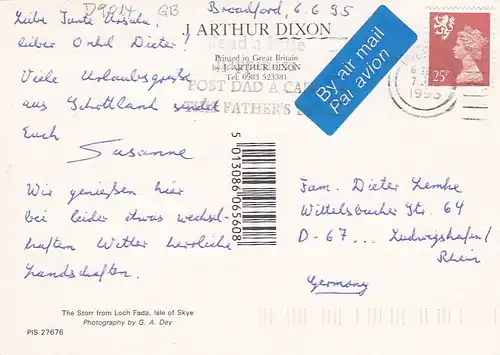 D9014 GB
Broadford, 6.6.95
Liebe Tante Ursula,
lieber Onkel Dieter!
Viele Urlaubsgrüße
aus Schottland sendet
Euch
Susanne
Wir genießen hier
bei leider etwas wechsel-
haftem Wetter herrliche
Landschaften.
The Storr from Loch Fada, Isle of Skye
Photography by G. A. Dey
PIS 27676
J. ARTHUR DIXON
Printed in Great Britain
by J. ARTHUR DIXON
Tel. 0983 523381
POST DAD A CARD
THIS FATHER'S DAY
5 013086 065608
By air mail
Par avion
25P
1995
Fam. Dieter Lemke
Wittelsbacher Str. 64
D-67... Ludwigshafen/
Rhein
Germany